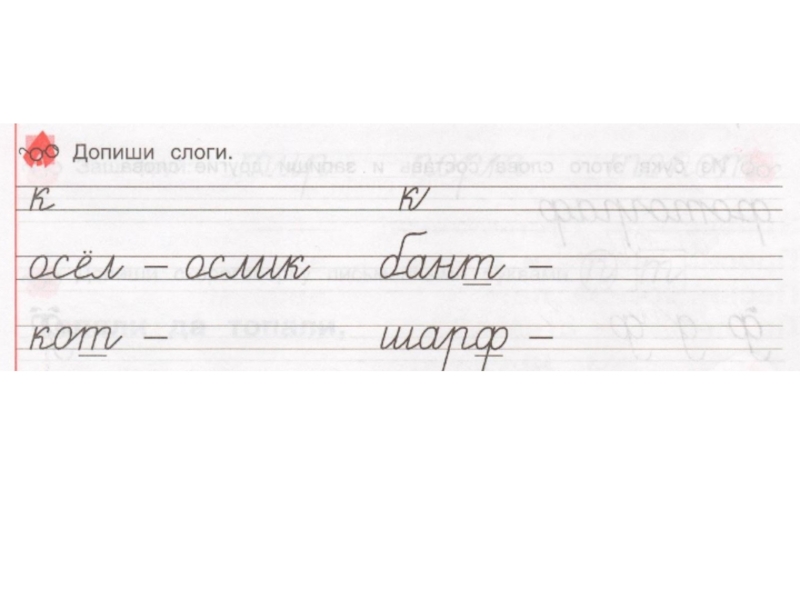 Допиши слоги.
к к
осёл – ослик бант
кот – шарф –